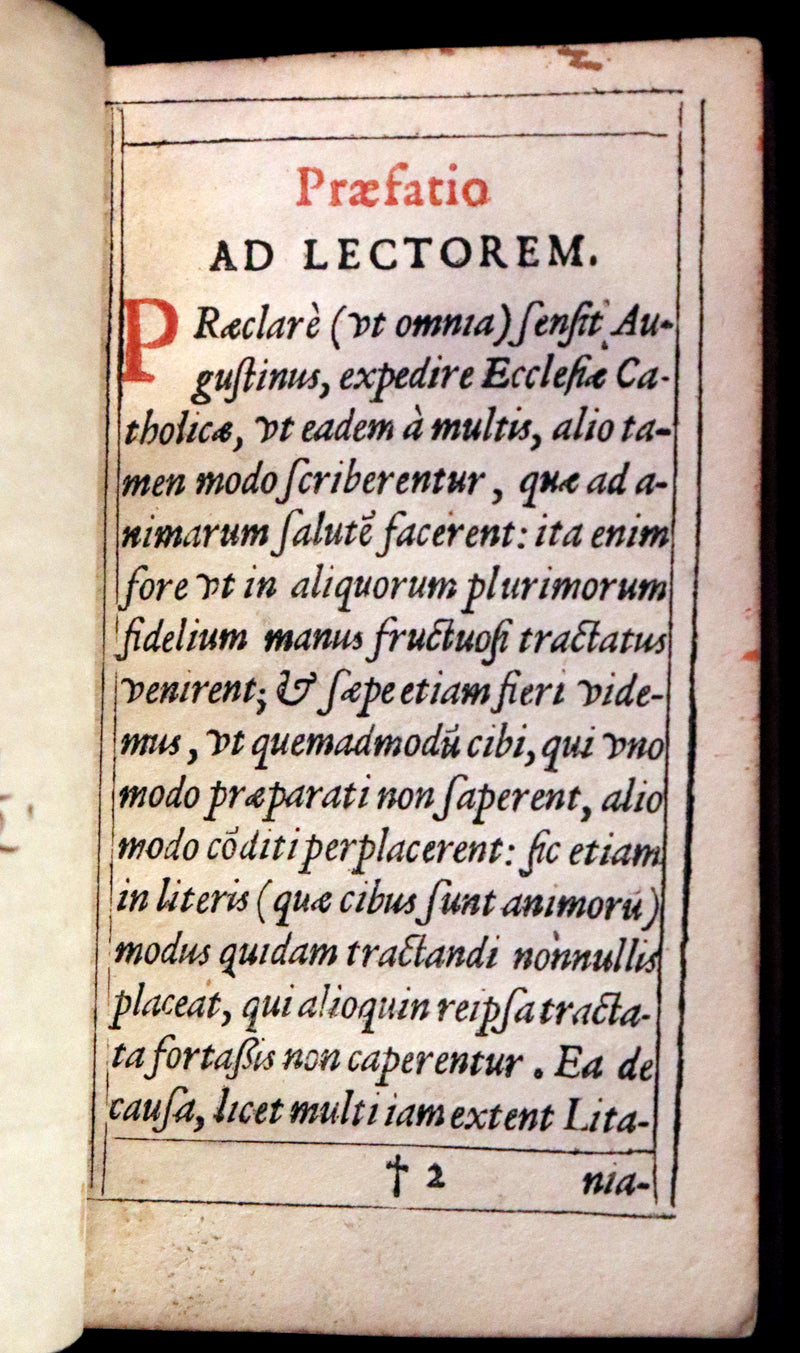 Præfatio
AD LECTOREM.
PRæclarè (vt omnia) ſenſit Au-
guſtinus, expedire Eccleſiæ Ca-
tholicæ, vt eadem à multis, alio ta-
men modo ſcriberentur, quæ ad a-
nimarum ſalutē facerent: ita enim
fore vt in aliquorum plurimorum
fidelium manus fructuoſi tractatus
venirent; & ſæpe etiam fieri vide-
mus, vt quemadmodū cibi, qui vno
modo præparati non ſaperent, alio
modo cōditi perplacerent: ſic etiam
in literis (quæ cibus ſunt animorū)
modus quidam tractandi nonnullis
placeat, qui alioquin reipſa tracta-
ta fortaſsis non caperentur. Ea de
cauſa, licet multi iam extent Lita-
† 2 nia-